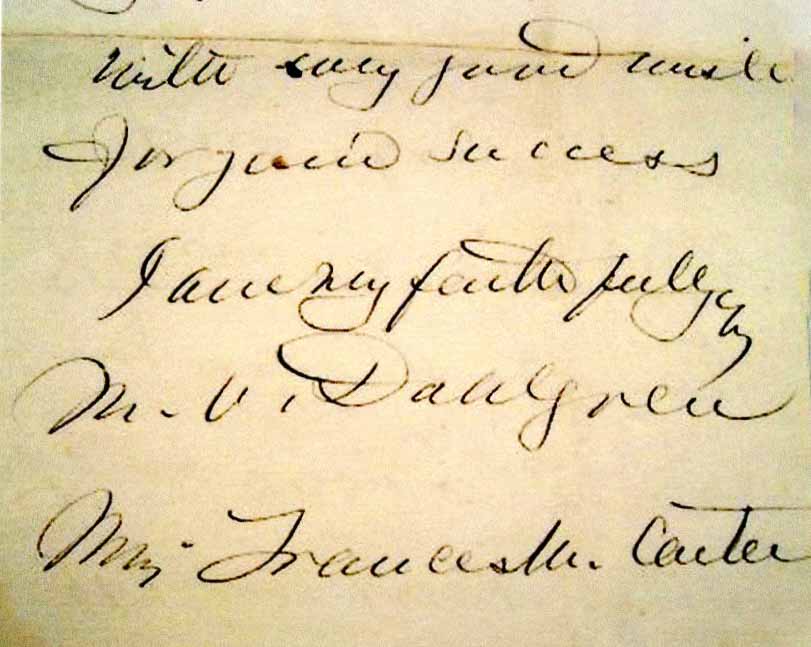 With every good wish
for your success
I am very faithfully
M. V. Dahlgren
Miss Frances M. Carter